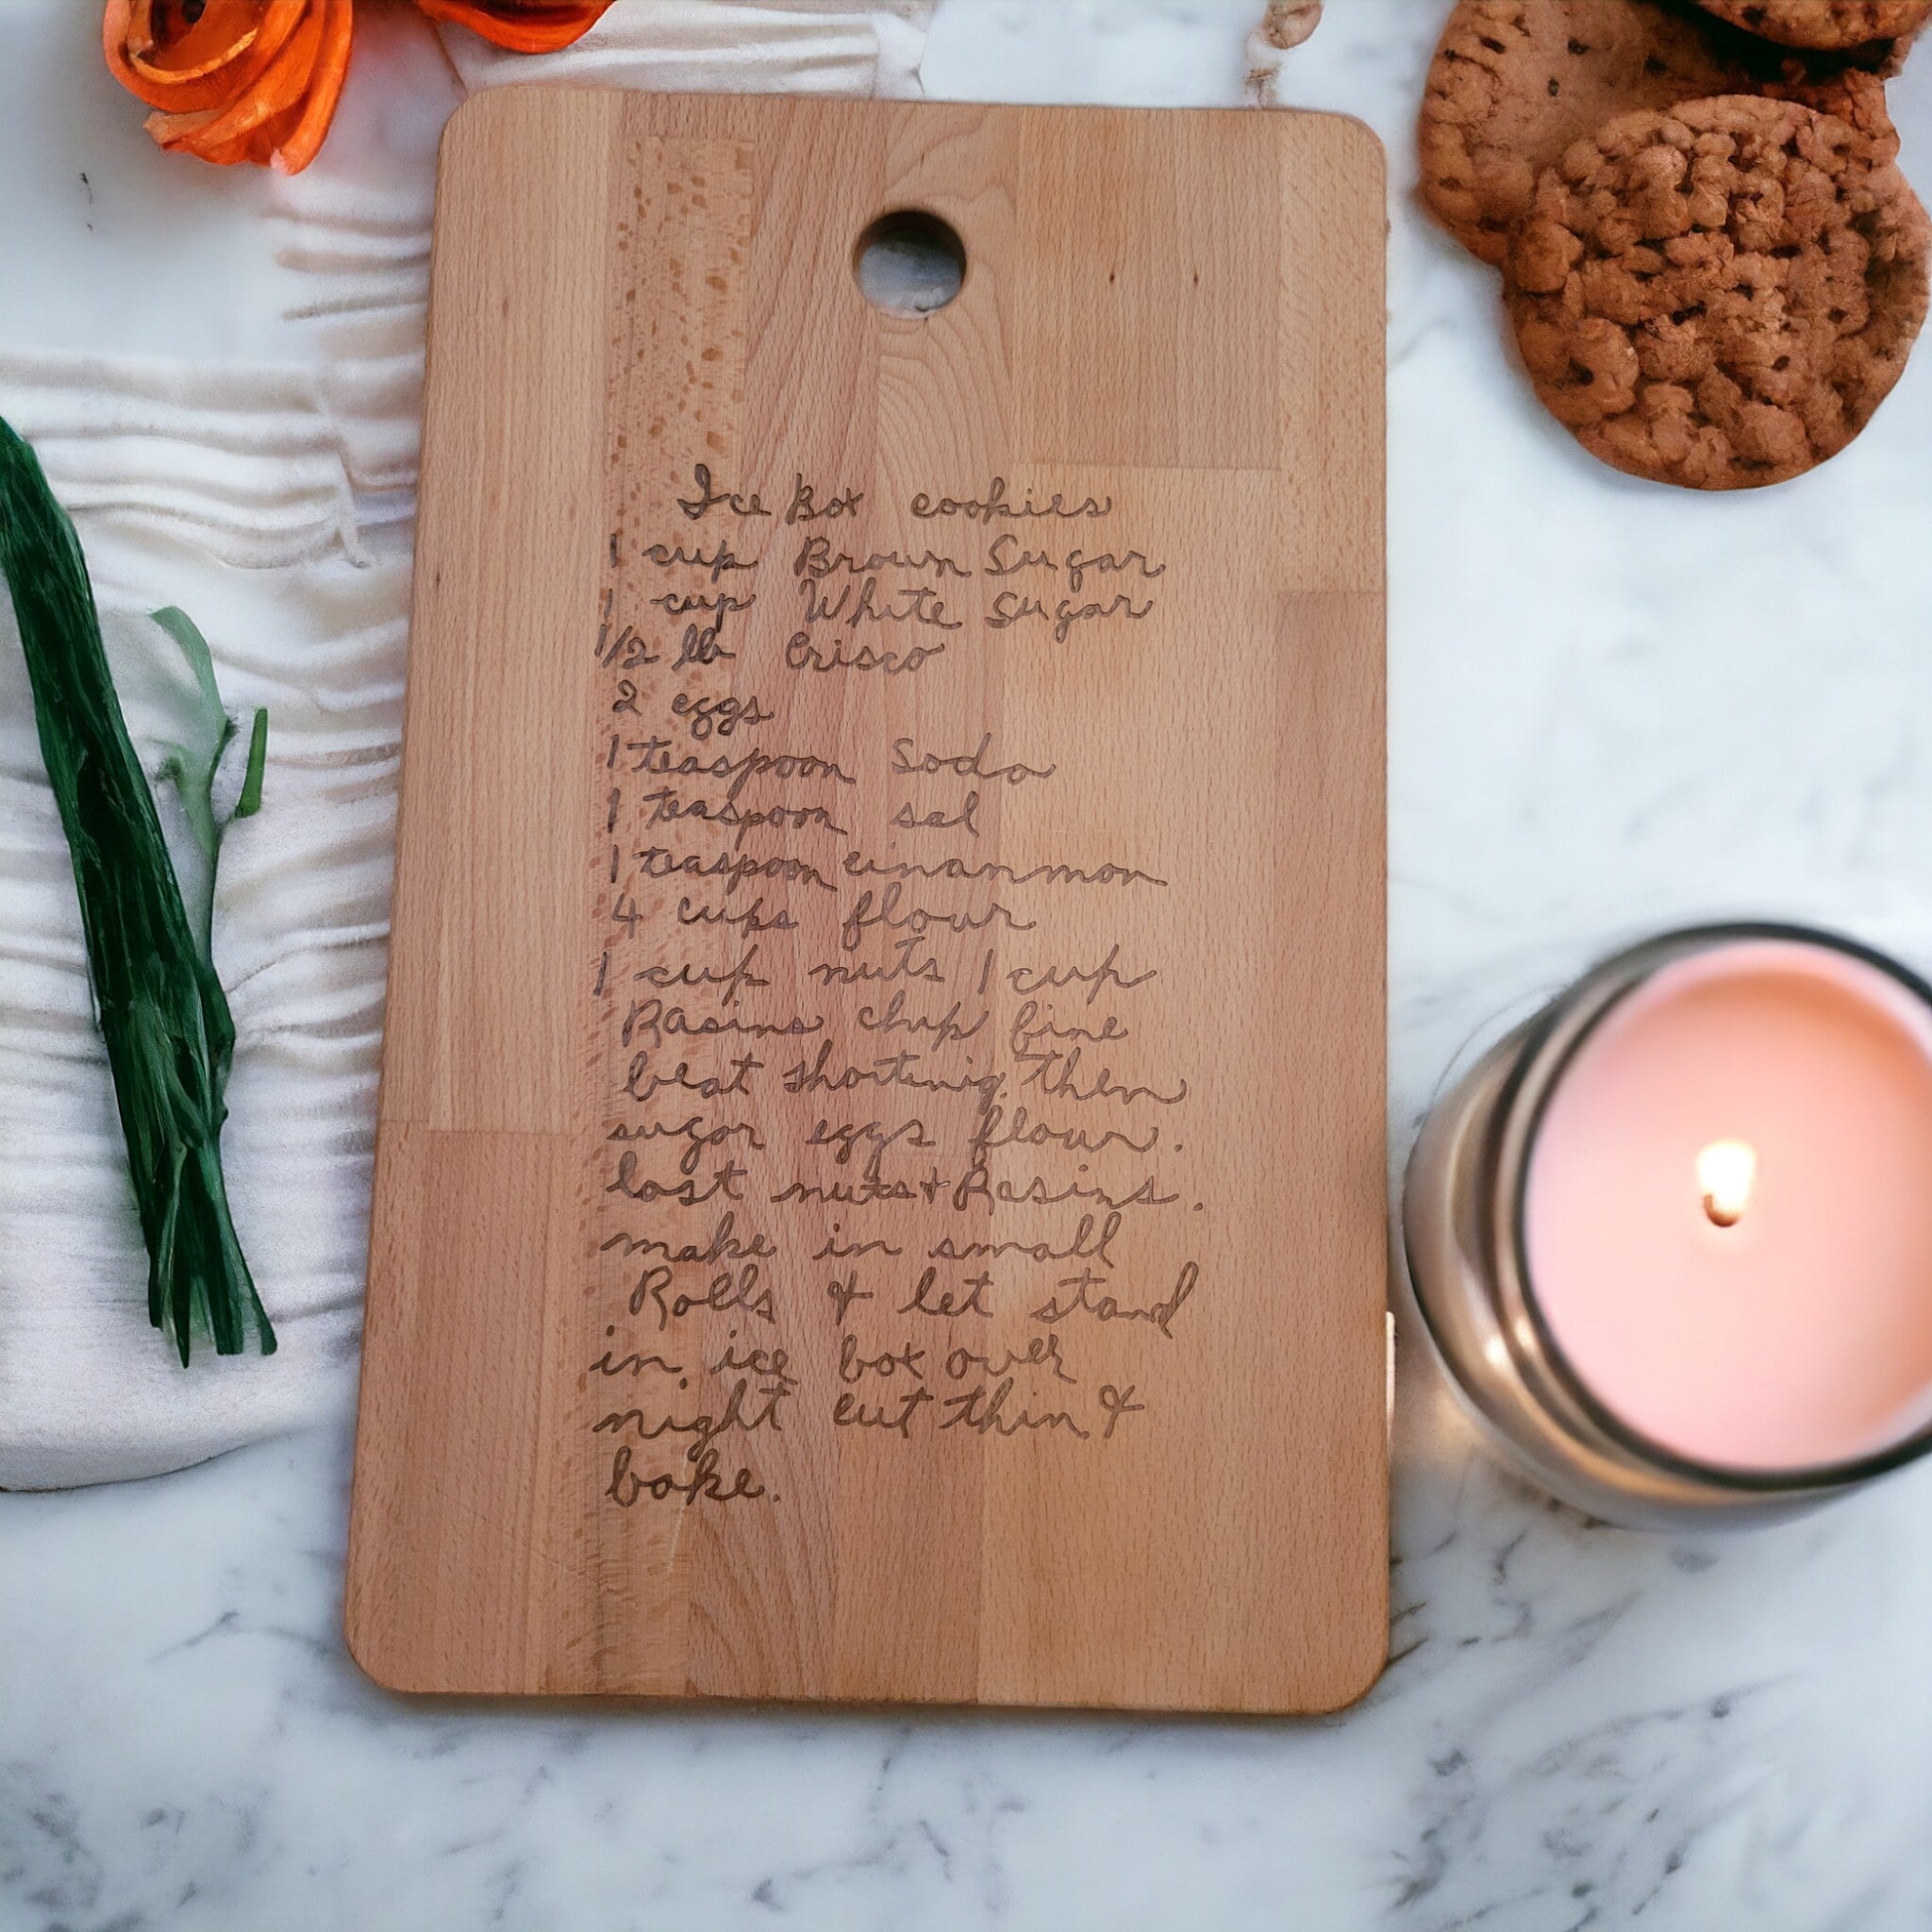 Ice Box cookies
1 cup Brown Sugar
1 cup White Sugar
1/2 lb Crisco
2 eggs
1 teaspoon Soda
1 teaspoon sal
1 teaspoon cinanmon
4 cups flour
1 cup nuts 1 cup
Rasins chop fine
beat shortinig then
sugar eggs flour.
last nuts & Rasins.
make in small
Rolls & let stand
in ice box over
night cut thin &
bake.